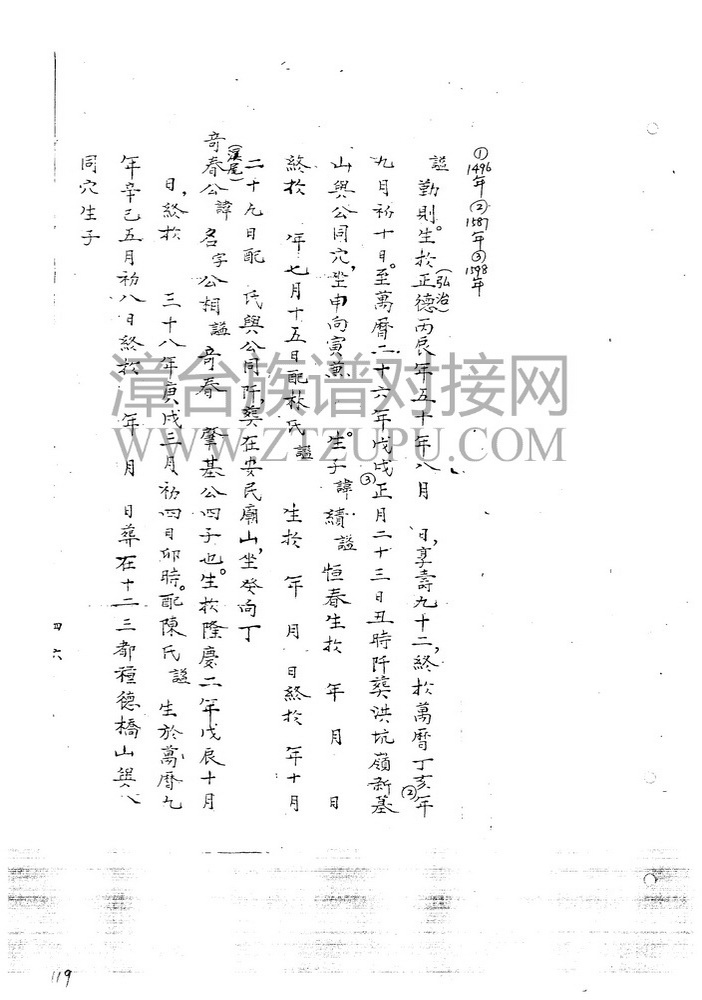 ①1496年②1587年③1598年
(弘治)
謚 勤則。生於正德丙辰年五十年八月 日,享壽九十二,終於萬曆丁亥年②
九月初十日。至萬曆二十六年戊戌③正月二十三日丑時阡葬洪坑嶺新墓
山與公同穴,坐申向寅兼 。生子諱績謚 恒春生於 年 月 日
終於 年七月十五日配林氏謚 生於 年 月 日終於 年十月
二十九日配 氏與公同阡,葬在安民廟山,坐癸向丁
(溪尾)
奇春公諱 名字公相謚奇春 肇基公四子也。生於隆慶二年戊辰十月
日,終於 三十八年庚戌三月初四日卯時。配陳氏謚 生於萬曆九
年辛巳五月初八日終於 年 月 日葬在十二三都種德橋山與公
同穴生子
四六
119
漳台族谱对接网
WWW.ZTZUPU.COM